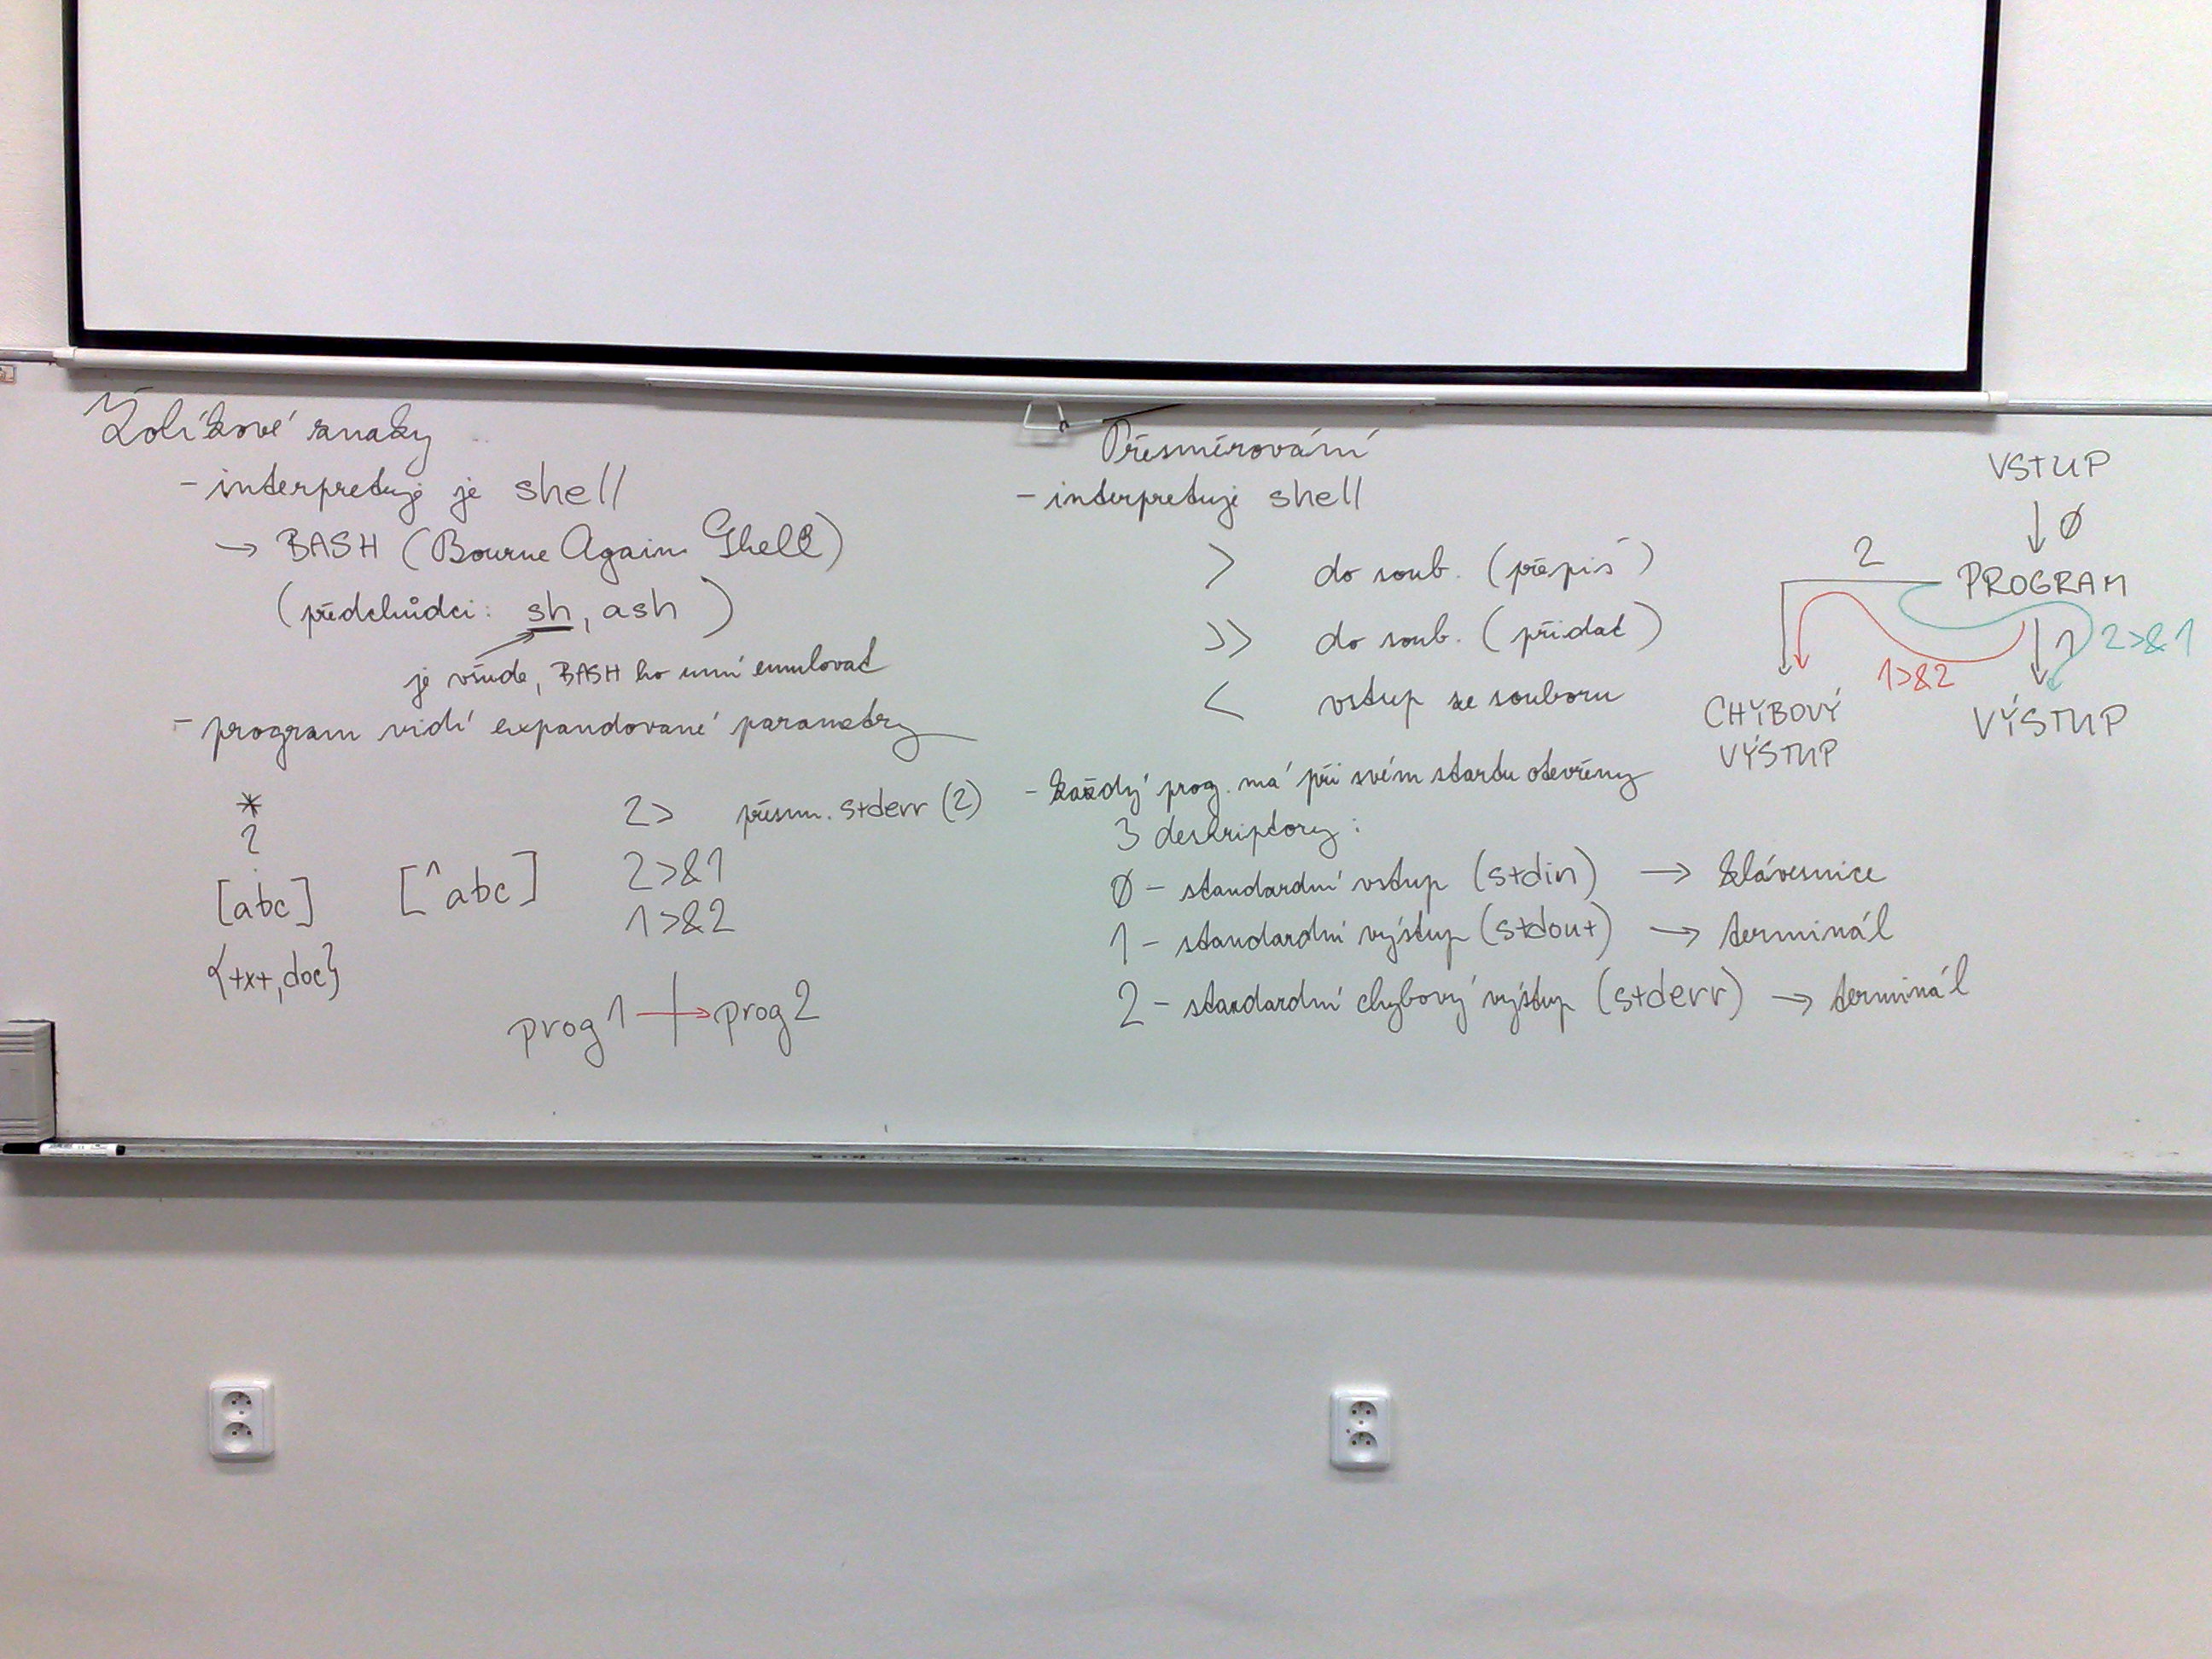 Žolíkové znaky
- interpretuje je shell
→ BASH (Bourne Again Shell)
(předchůdci: sh, ash)
je všude, BASH ho umí emulovat
- program vidí expandované parametry
*
?
[abc] [^abc]
{txt,doc}
2> přesm. stderr (2)
2>&1
1>&2
prog1 | prog2
Přesměrování
- interpretuje shell
> do soub. (přepis)
>> do soub. (přidat)
< vstup ze souboru
- každý prog. má při svém startu otevřeny
3 deskriptory:
0 - standardní vstup (stdin) → klávesnice
1 - standardní výstup (stdout) → terminál
2 - standardní chybový výstup (stderr) → terminál
VSTUP
0
2
PROGRAM
1
2>&1
1>&2
CHYBOVÝ
VÝSTUP
VÝSTUP